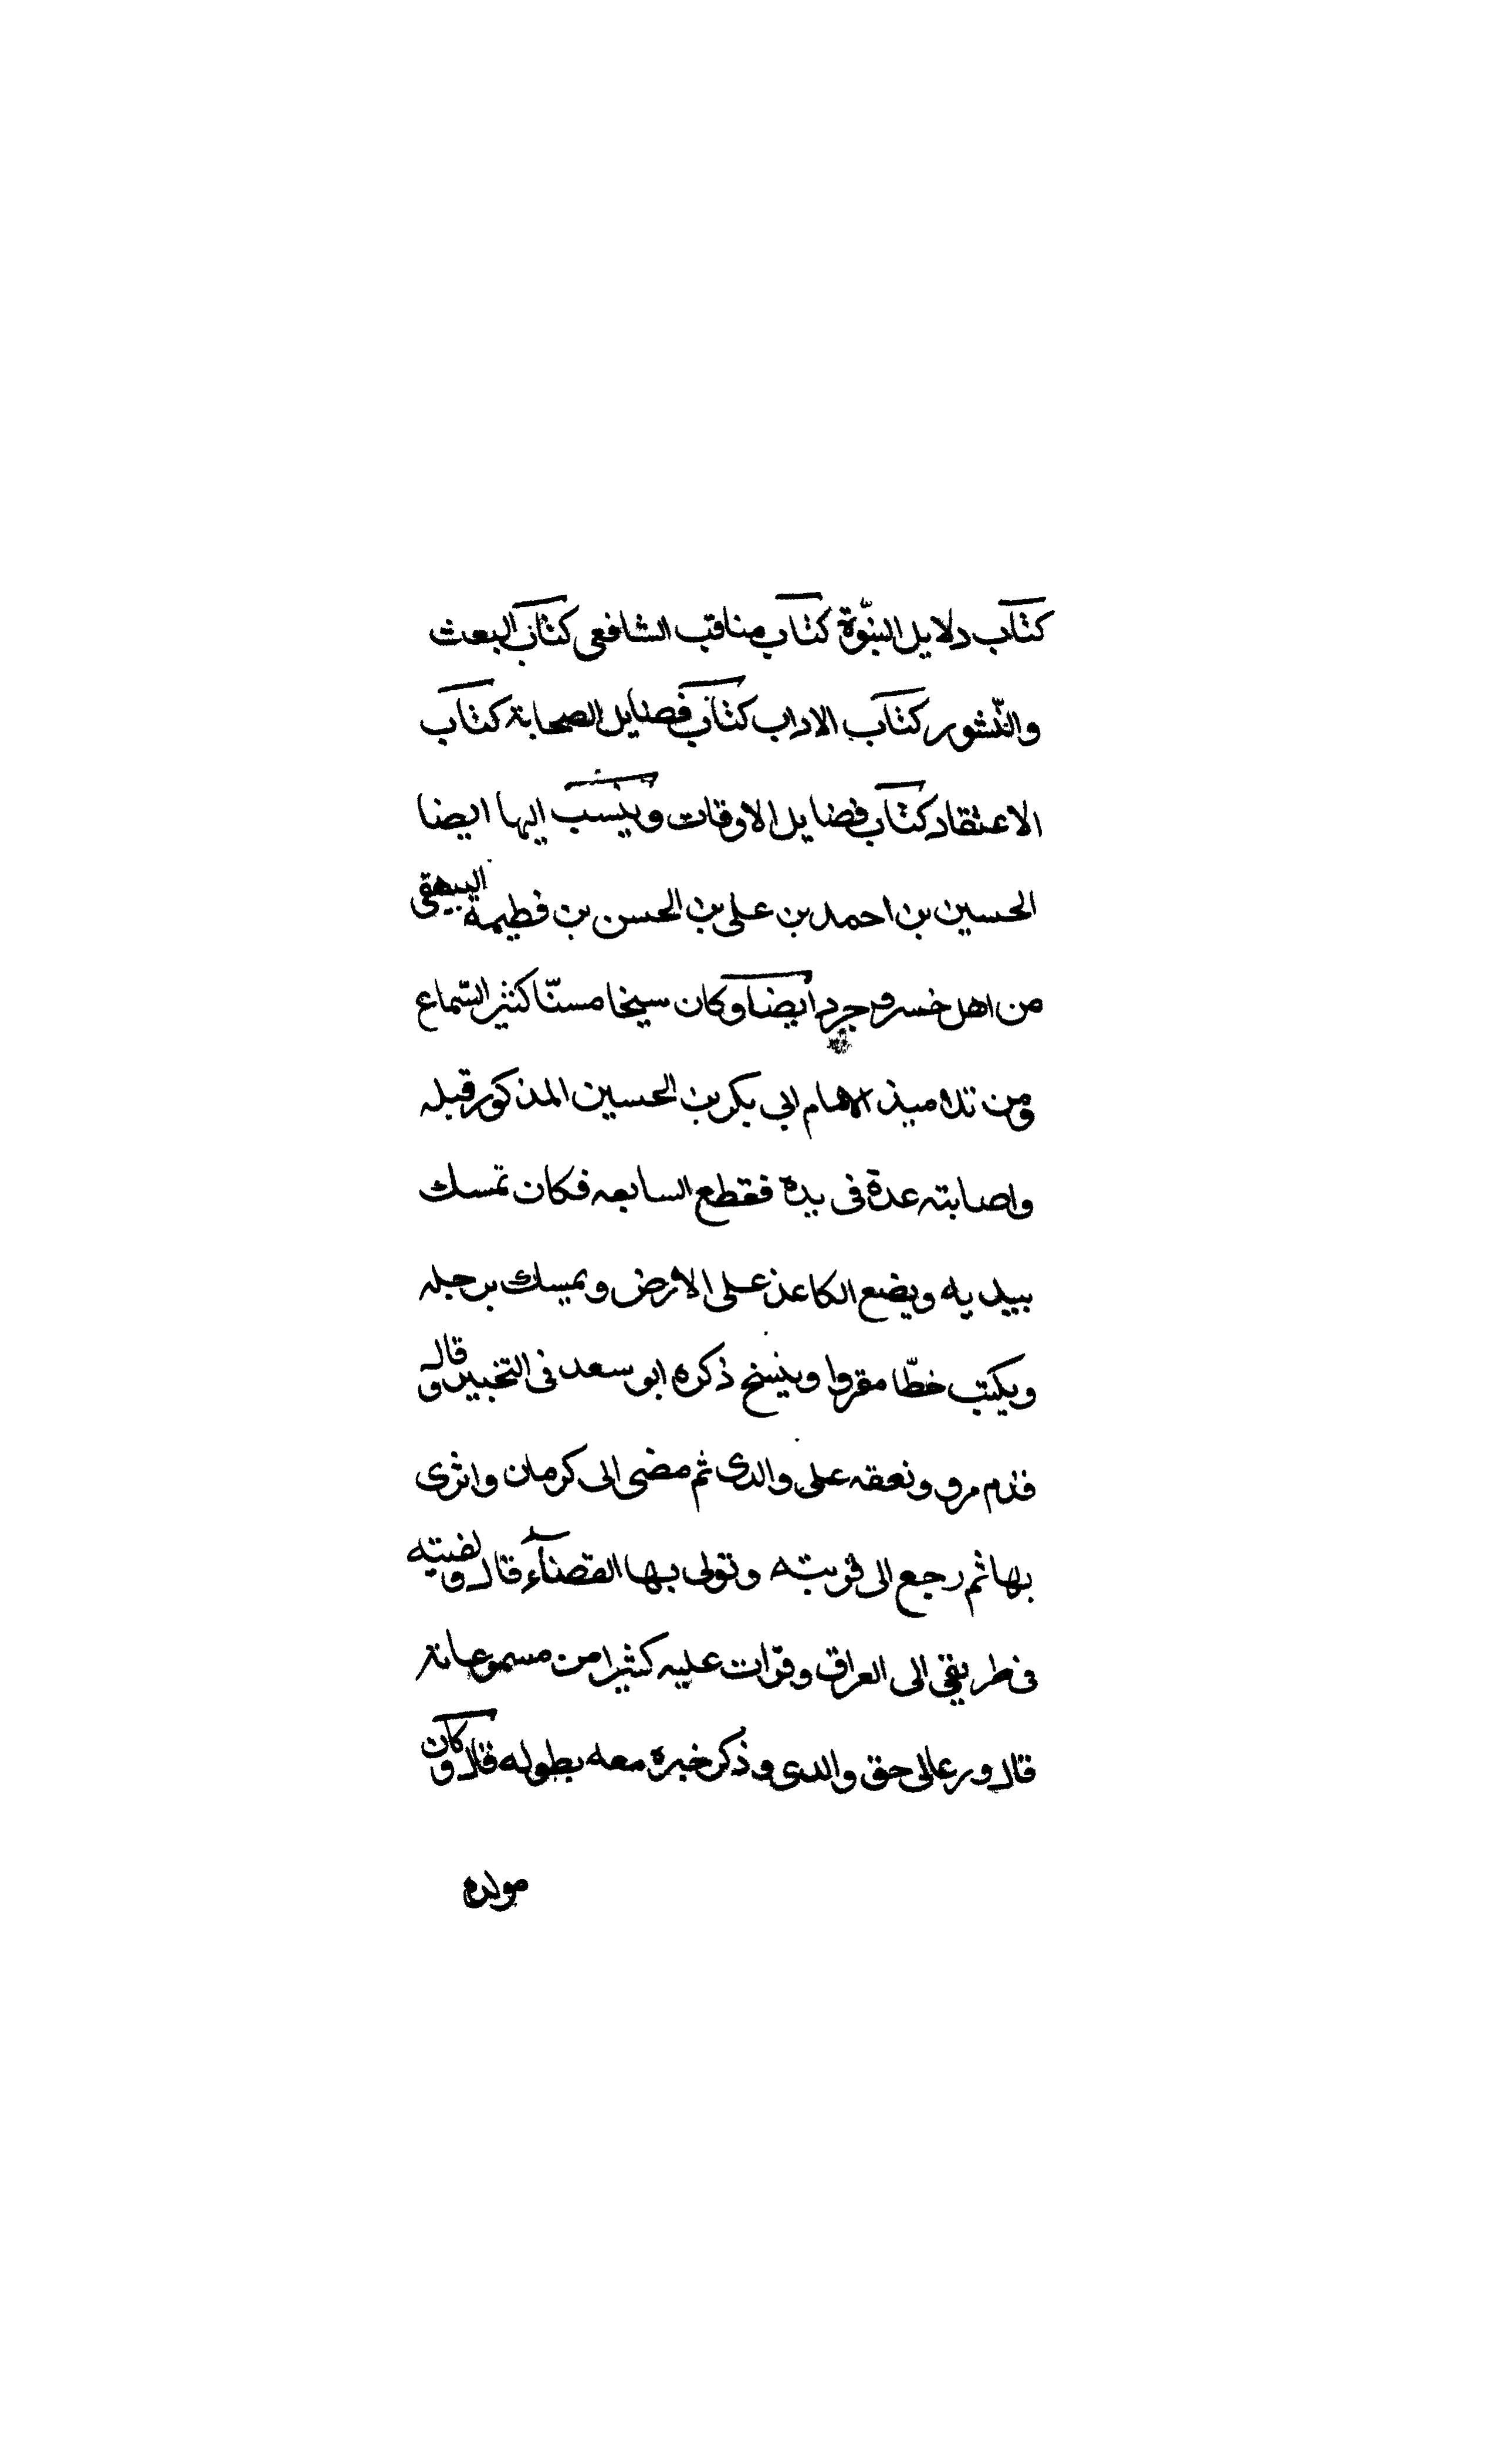 كتاب دلايل النبوّة كتاب مناقب الشافعى كتاب البعث
والنّشور كتاب الاداب كتاب فضايل الصحابة كتاب
الاعتقاد كتاب فضايل الاوقات وينسب اليها ايضا
الحسين بن احمد بن على بن الحسن بن فطيمة البيهقى
من اهل خسروجرد أيضا وكان سيخا مسنّا كثير السّماع
ومن تلاميذ الامام ابى بكر بن الحسين المذكور قبله
واصابته عدة فى يده فقطع السابعه فكان تمسك
بيديه ويضع الكاعذ على الارض ويمسك برجله
ويكتب خطّا مقروا وينسخ ذكره ابو سعد فى التخبير قال و
قدم مرو ونعقه على والدى ثم مضى الى كرمان واثرى
بها ثم رجع الى قريته وتولى بها القضآء قال ولقيته
فى طريقى الى العراق وقرات عليه كثيرا من مسموعاته
قال ورعالى حق والدى وذكر خبره معه بطوله قال وكان
مولده